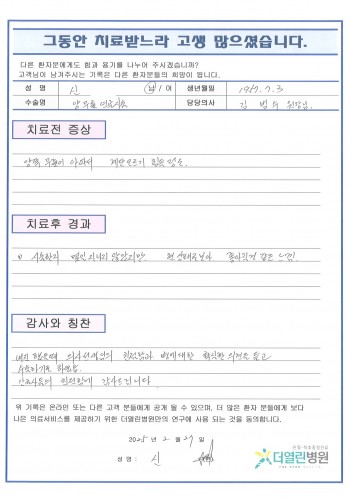 그동안 치료받느라 고생 많으셨습니다.
다른 환자분에게도 힘과 용기를 나누어 주시겠습니까?
고객님이 남겨주시는 기록은 다른 환자분들의 희망이 됩니다.
성 명 신 남 / 여 생년월일 1967. 7. 3
수술명 양무릎 연골수술 담당의사 김 범 원장님.
치료전 증상
양쪽 무릎이 아파서 계단오르기 힘든 정도.
치료후 경과
수술한지 며칠 지나지 않았지만 현 상태로보아 좋아진것 같은 느낌!
감사와 칭찬
내원 하였을때 의사선생님의 친절함과 병에대한 확실한 의견을 듣고
수술하기로 하였음.
간호사들의 친절함에 감사드립니다.
위 기록은 온라인 또는 다른 고객 분들에게 공개 될 수 있으며, 더 많은 환자 분들에게 보다
나은 의료서비스를 제공하기 위한 더열린병원만의 연구에 사용 되는 것을 동의합니다.
2025 년 2 월 27 일
성 명 : 신
관절·척추중점진료
더열린병원